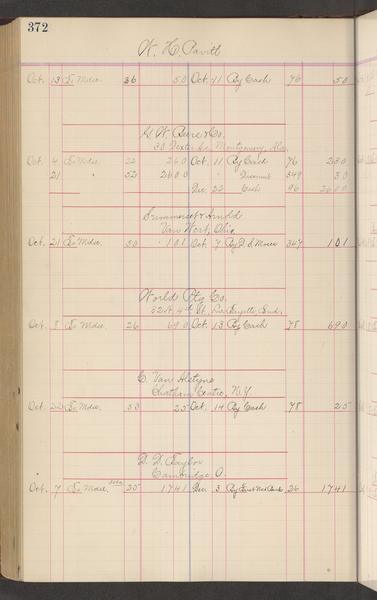 372
W. H. Pavitt
Oct. 13 To Mdse. 36 50 Oct. 11 By Cash 76 50
G. W. & Co.
30 Dexter Ave. Montgomery, Ala.
Oct. 4 To Mdse. 22 260 Oct. 11 By Cash 76 230
21 " 52 2600 " Discount 349 30
Dec. 22 Cash 96 2600
Summerset & Arnold
Van Wert, Ohio
Oct. 21 To Mdse. 50 101 Oct. 7 By D. S. Moses 347 101
World Ptg Co.
52 N. 4th St. LaFayette, Ind.
Oct. 8 To Mdse. 26 690 Oct. 13 By Cash 78 690
C. Van Alstyne
Chatham Centre, N.Y.
Oct. 22 To Mdse. 53 25 Oct. 14 By Cash 78 25
D. D. Taylor
Cambridge, O.
Oct. 7 To Mdse. 25 1741 Dec. 3 By 26 1741